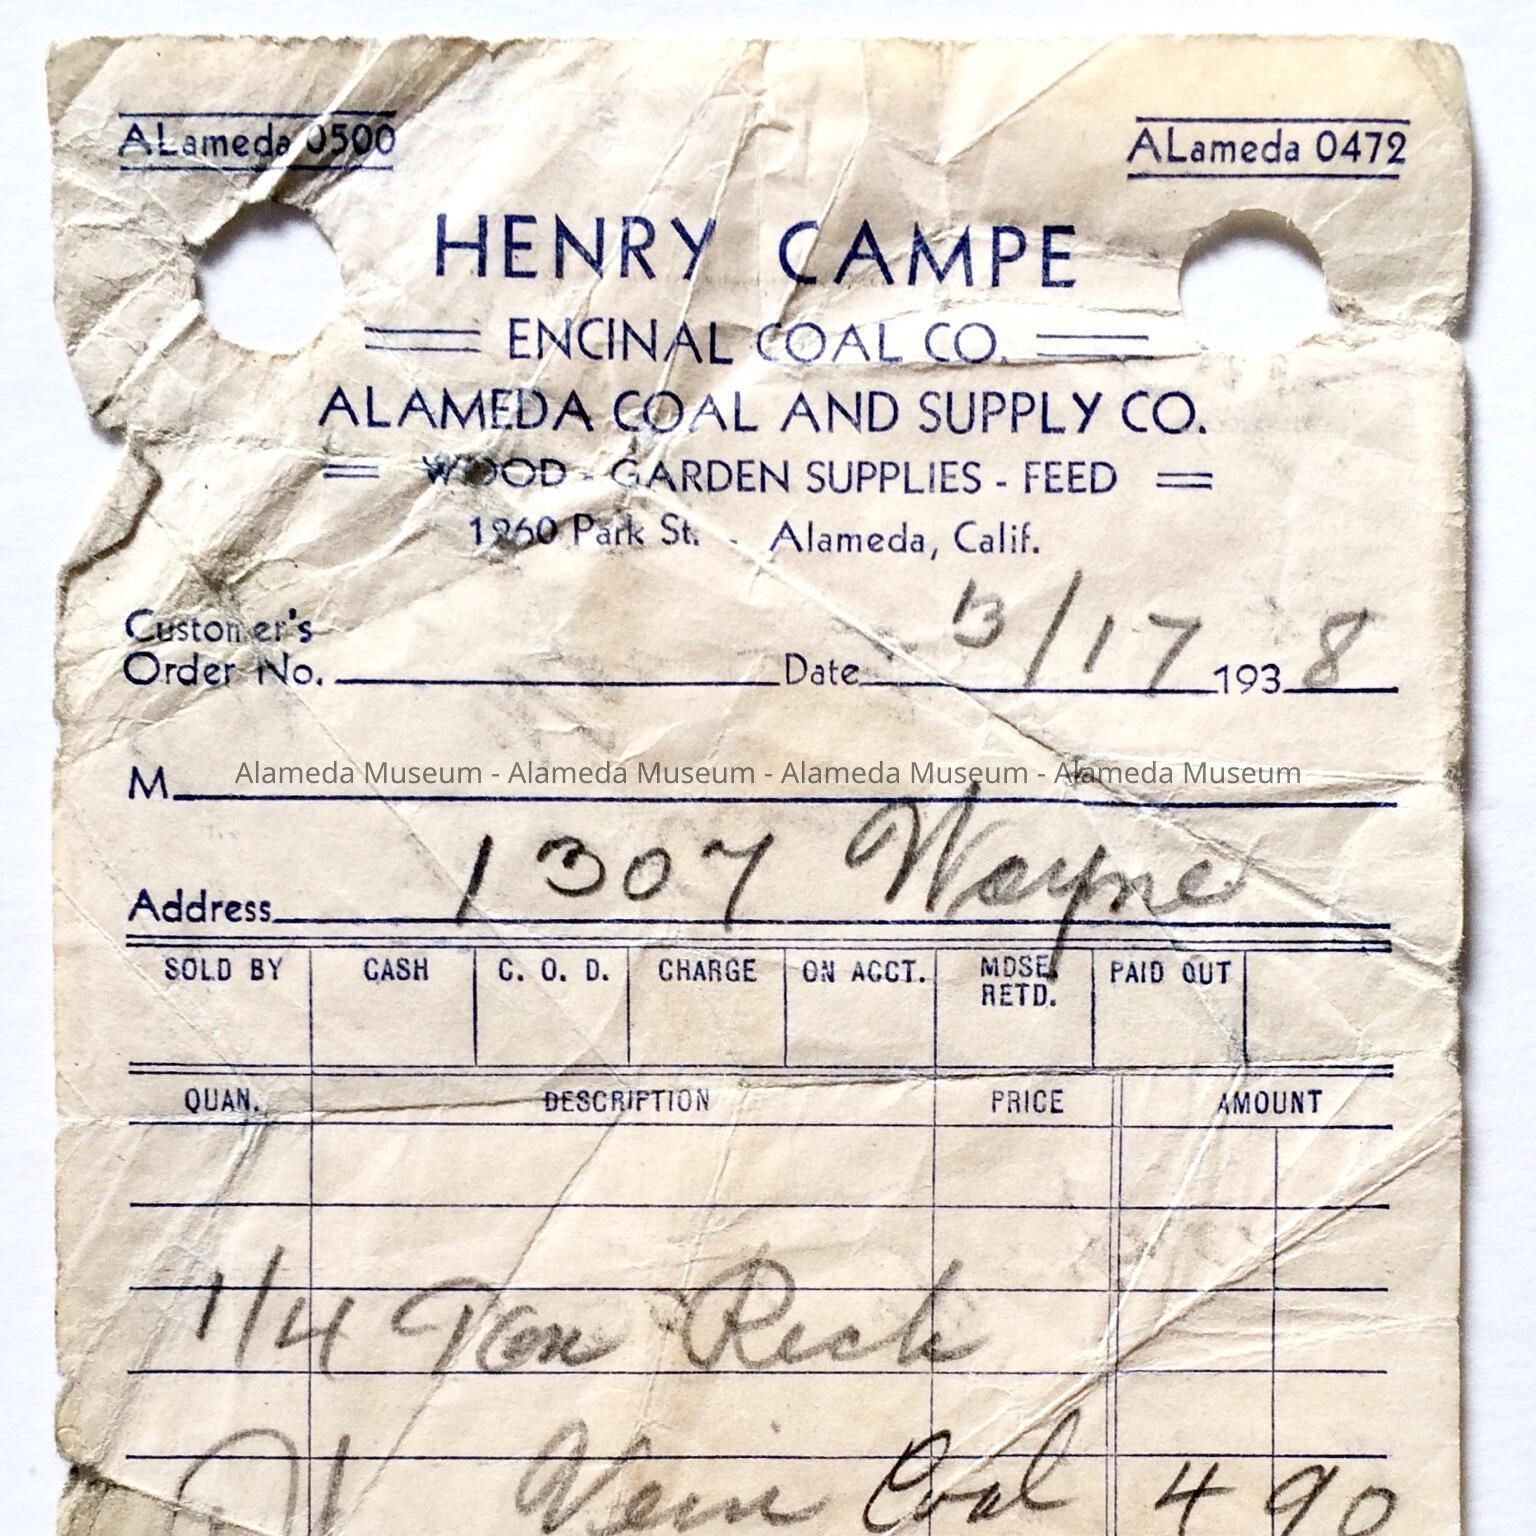 ALameda 0500
ALameda 0472
HENRY CAMPE
ENCINAL COAL CO.
ALAMEDA COAL AND SUPPLY CO.
WOOD - GARDEN SUPPLIES - FEED
1960 Park St. - Alameda, Calif.
Customer's
Order No. Date 3/17 1938
M
Alameda Museum - Alameda Museum - Alameda Museum - Alameda Museum
Address 1307 Wayne
SOLD BY CASH C. O. D. CHARGE ON ACCT. MDSE. RETD. PAID OUT
QUAN. DESCRIPTION PRICE AMOUNT
1/4 Ton Rock
Vein Coal 4 90